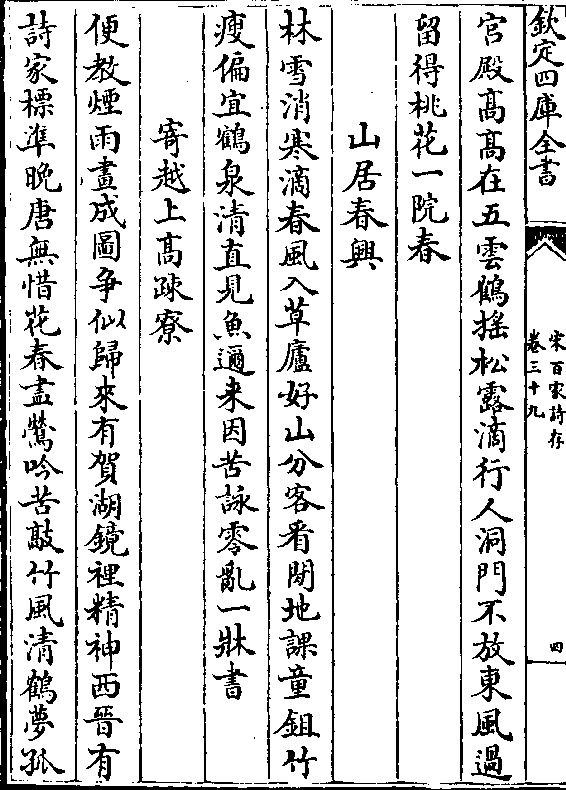 欽定四庫全書
宋百家詩存
卷三十九
四
宮殿髙髙在五雲鶴揺松露滴行人洞門不放東風過
留得桃花一院春
山居春興
林雪消寒滴春風入草廬好山分客看閒地課童鉏竹
瘦偏宜鶴泉清直見魚邇来因苦詠零亂一牀書
寄越上髙疎寮
便教煙雨畫成圖争似歸來有賀湖鏡裡精神西晉有
詩家標準晚唐無惜花春盡鶯吟苦敲竹風清鶴夢孤